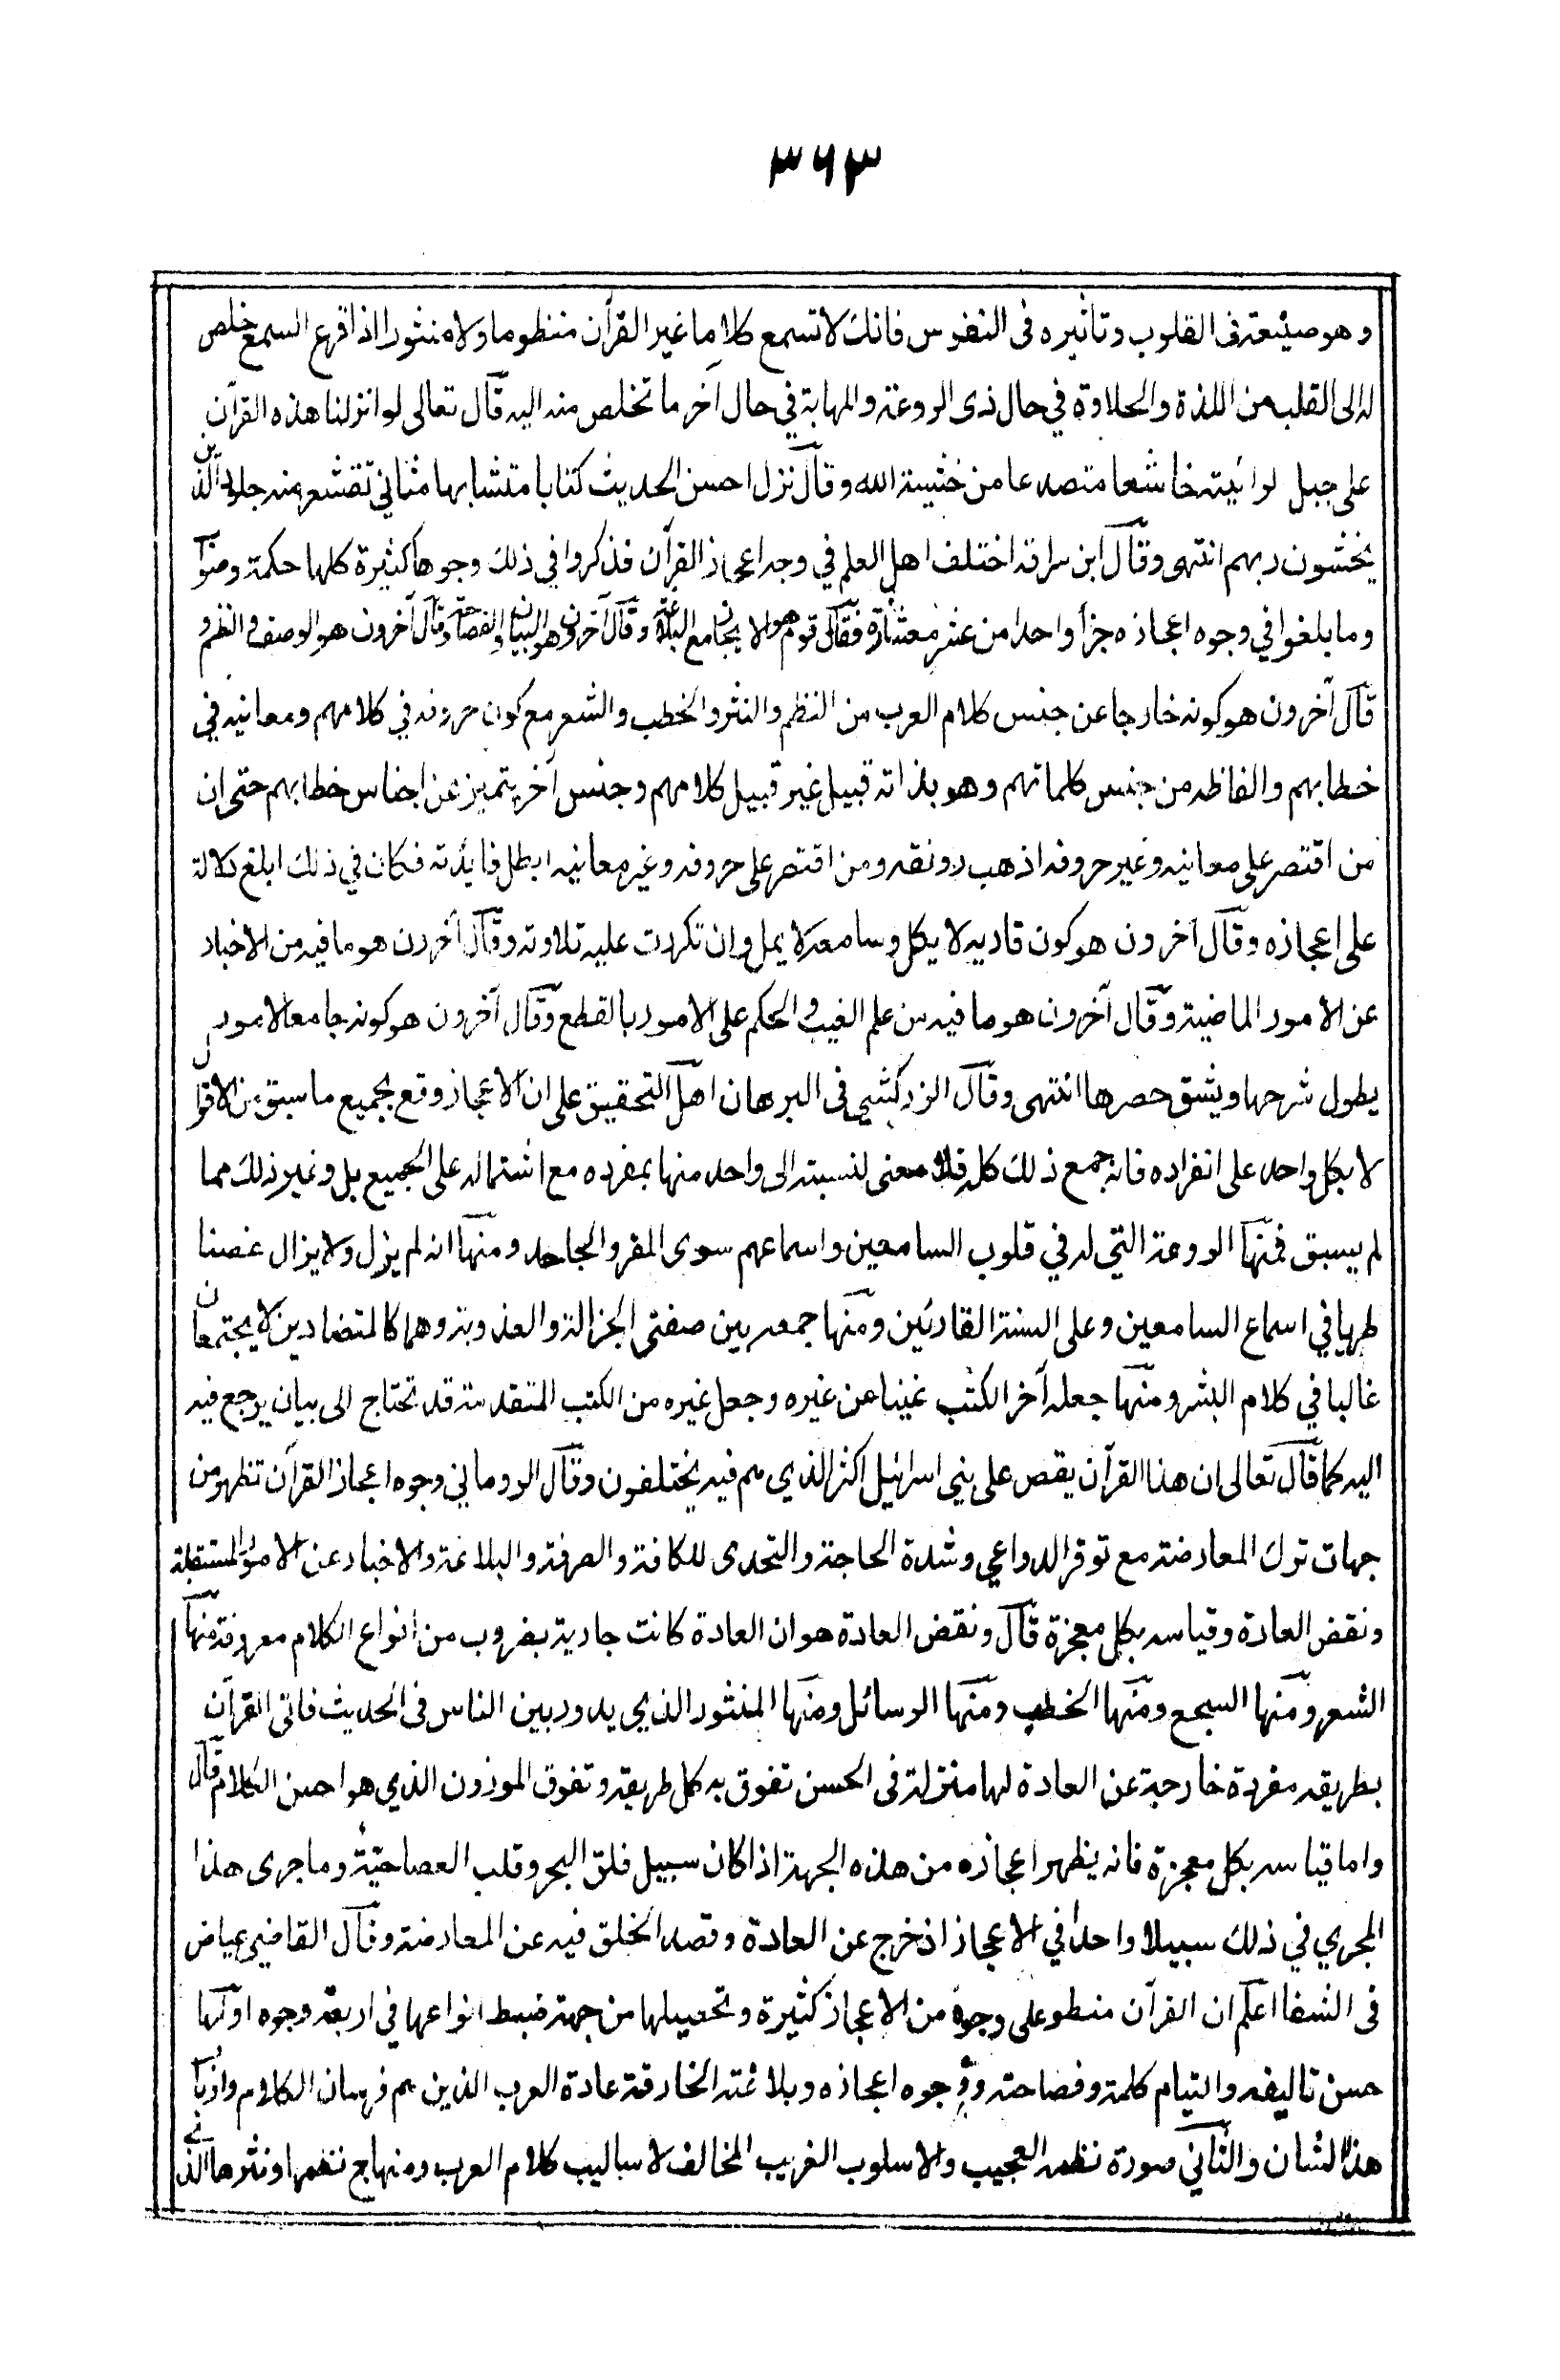 ٣٦٣
وهو صنيعه فى القلوب وتاثيره فى النفوس فانك لا تسمع كلاما غير القرآن منظوما ولا منثورا اذا قرع السمع خلص
له الى القلب من اللذة والحلاوة في حال ذى الروعة والمهابة في حال آخر ما تخلص منه اليه قال تعالى لو انزلنا هذه القرآن
على جبل لرائيته خاشعا متصدعا من خشية الله وقال نزل احسن الحديث كتابا متشابها مثاني تقشعر منه جلود الذين
يخشون ربهم انتهى وقال ابن سراقة اختلف اهل العلم في وجه اعجاز القرآن فذكروا في ذلك وجوها كثيرة كلها حكمة وصوابا
وما بلغوا في وجوه اعجازه جزأ واحدا من عشر معشاره فقال قوم هو الايجاز مع البلاغة وقال آخرون هو البيان والفصاحة وقال آخرون هو الوصف والنظم و
قال آخرون هو كونه خارجا عن جنس كلام العرب من النظم والنثر والخطب والشعر مع كون حروفه في كلامهم ومعانيه في
خطابهم والفاظه من جنس كلماتهم وهو بذاته قبيل غير قبيل كلامهم وجنس آخر يتميز عن اجناس خطابهم حتى ان
من اقتصر على معانيه وغير حروفه اذهب رونقه ومن اقتصر على حروفه وغير معانيه ابطل فايدته فكان في ذلك ابلغ دلالة
على اعجازه وقال آخرون هو كون قاريه لا يكل وسامعه لا يمل وان تكررت عليه تلاوته وقال آخرون هو ما فيه من الاخبار
عن الامور الماضية وقال آخرون هو ما فيه من علم الغيب والحكم على الامور بالقطع وقال آخرون هو كونه جامعا لامور
يطول شرحها ويشق حصرها انتهى وقال الزركشي فى البرهان اهل التحقيق على ان الاعجاز وقع بجميع ما سبق من الاقوال
لا بكل واحد على انفراده فانه جمع ذلك كله فلا معنى لنسبته الى واحد منها بمفرده مع اشتماله على الجميع بل وغير ذلك مما
لم يسبق فمنها الروعة التي له في قلوب السامعين واسماعهم سوى المقر والجاحد ومنها انه لم يزل ولا يزال غصنا
طريا في اسماع السامعين وعلى السنة القارئين ومنها جمعه بين صفتى الجزالة والعذوبة وهما كالمتضادين لا يجتمعان
غالبا في كلام البشر ومنها جعله آخر الكتب غنيا عن غيره وجعل غيره من الكتب المتقدمة قد تحتاج الى بيان يرجع فيه
اليه كما قال تعالى ان هذا القرآن يقص على بني اسرائيل اكثر الذي هم فيه يختلفون وقال الروماني وجوه اعجاز القرآن تظهر من
جهات ترك المعارضة مع توفر الدواعي وشدة الحاجة والتحدى للكافة والصرفة والبلاغة والاخبار عن الامور المستقبلة
ونقض العادة وقياسه بكل معجزة قال ونقض العادة هو ان العادة كانت جارية بضروب من انواع الكلام معروفة منها
الشعر ومنها السجع ومنها الخطب ومنها الرسائل ومنها المنثور الذي يدور بين الناس فى الحديث فاتى القرآن
بطريقه مفردة خارجة عن العادة لها منزلة فى الحسن تفوق به كل طريقه وتفوق الموزون الذي هو احسن الكلام قال
واما قياسه بكل معجزة فانه يظهر اعجازه من هذه الجهة اذا كان سبيل فلق البحر وقلب العصا حيّة وما جرى هذا
المجري في ذلك سبيلا واحدا في الاعجاز اذ خرج عن العادة وقصد الخلق فيه عن المعارضة وقال القاضي عياض
فى الشفا اعلم ان القرآن منطو على وجوه من الاعجاز كثيرة وتحصيلها من جهة ضبط انواعها في اربعة وجوه اولها
حسن تاليفه والتيام كلمة وفصاحته ووجوه اعجازه وبلاغته الخارقة عادة العرب الذين هم فرسان الكلام وارباب
هذا الشان والثاني صورة نظمه العجيب والاسلوب الغريب المخالف لاساليب كلام العرب ومنهاج نظمها ونثرها الذي